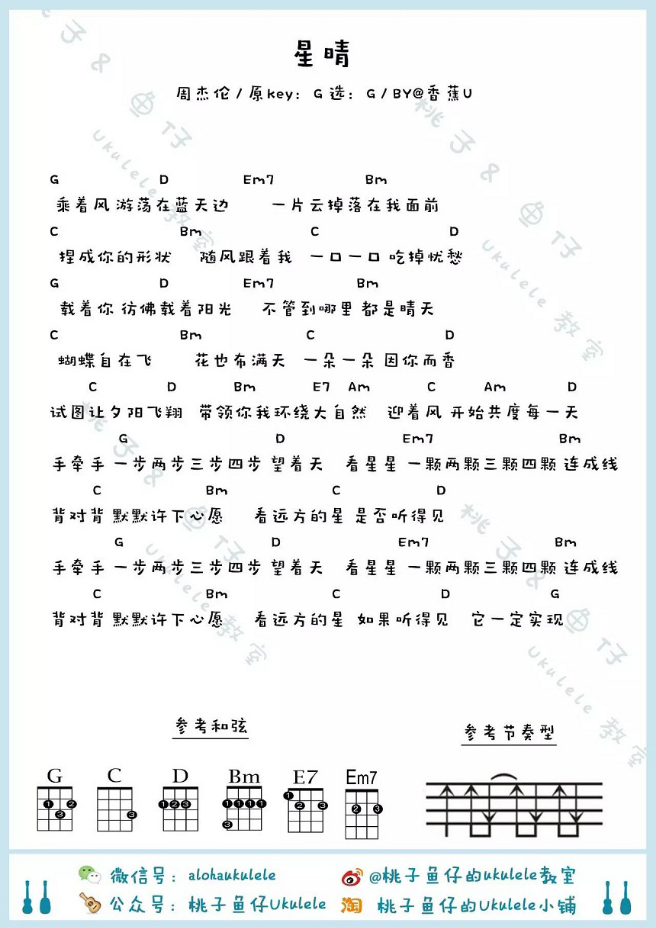 星晴
周杰伦/原key：G 选：G/BY@香蕉U
G D Em7 Bm
乘着风 游荡在蓝天边 一片云掉落在我面前
C Bm C D
捏成你的形状 随风跟着我 一口一口 吃掉忧愁
G D Em7 Bm
载着你 彷佛载着阳光 不管到哪里 都是晴天
C Bm C D
蝴蝶自在飞 花也布满天 一朵一朵 因你而香
C D Bm E7 Am C Am D
试图让夕阳飞翔 带领你我环绕大自然 迎着风 开始共度每一天
G D Em7 Bm
手牵手 一步两步三步四步 望着天 看星星 一颗两颗三颗四颗 连成线
C Bm C D
背对背 默默许下心愿 看远方的星 是否听得见
G D Em7 Bm
手牵手 一步两步三步四步 望着天 看星星 一颗两颗三颗四颗 连成线
C Bm C D G
背对背 默默许下心愿 看远方的星 如果听得见 它一定实现
参考和弦
参考节奏型
G C D Bm E7 Em7
1 2 3
3
1 2 3
1 1 1 1 3
1 2 3
2 3
微信号：alohaukulele
@桃子鱼仔的ukulele教室
公众号：桃子鱼仔Ukulele
淘 桃子鱼仔的Ukulele小铺
桃子&鱼仔
Ukulele 教室
桃子&鱼仔
Ukulele 教室
桃子&鱼仔
Ukulele 教室
桃子&鱼仔
Ukulele 教室